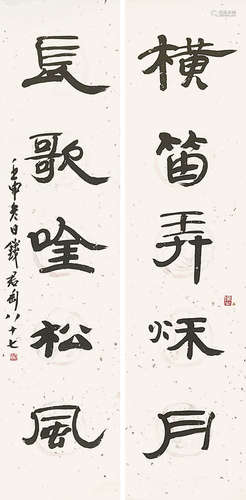 橫笛弄秋月
長歌唫松風
壬申日錢君匋八十七